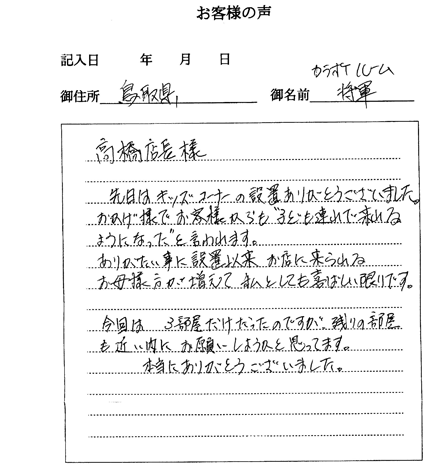 お客様の声
記入日　　年　　月　　日
カラオケルーム
御住所　鳥取県　御名前　将軍
高橋店長様
先日はキッズコーナーの設置ありがとうございました。
おかげ様でお客様からも"子ども連れで来れる
ようになった"と言われます。
ありがたい事に設置以来お店に来られる
お母様方が増えて私としても喜ばしい限りです。
今回は 3部屋だけだったのですが残りの部屋
も近い内にお願いしようかと思ってます。
本当にありがとうございました。